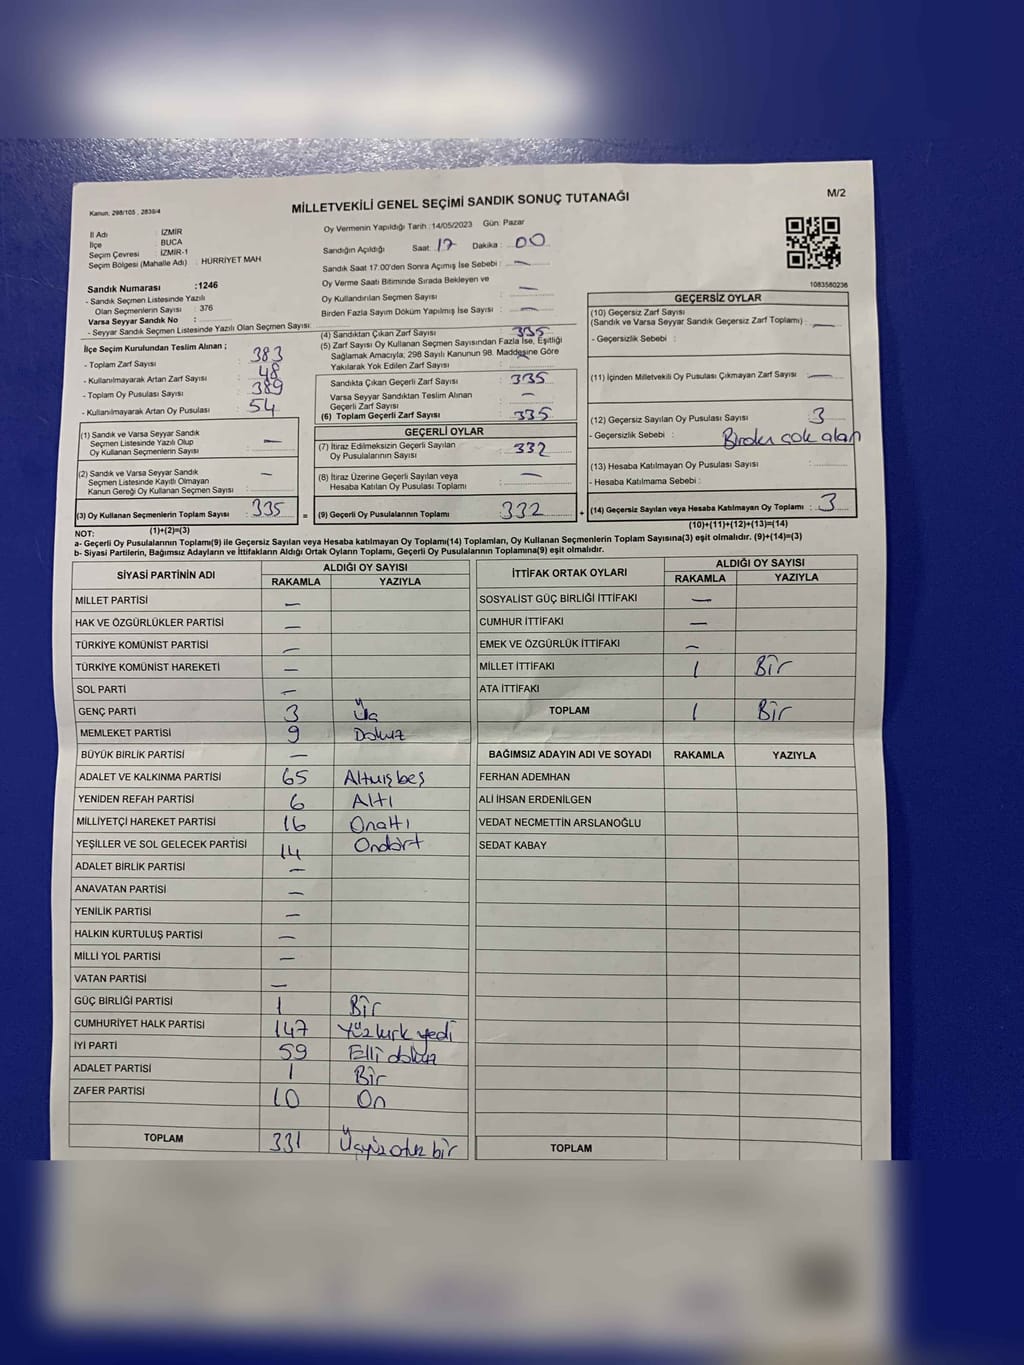 MİLLETVEKİLİ GENEL SEÇİMİ SANDIK SONUÇ TUTANAĞI
M/2
Kanun, 298/105 , 2839/4
İl Adı : İZMİR
İlçe : BUCA
Seçim Çevresi : İZMİR-1
Seçim Bölgesi (Mahalle Adı) : HURRİYET MAH
Sandık Numarası : 1246
- Sandık Seçmen Listesinde Yazılı
Olan Seçmenlerin Sayısı : 376
Varsa Seyyar Sandık No :
- Seyyar Sandık Seçmen Listesinde Yazılı Olan Seçmen Sayısı
Oy Vermenin Yapıldığı Tarih :14/05/2023 Gün: Pazar
Sandığın Açıldığı Saat: 17 Dakika : 00
Sandık Saat 17:00'den Sonra Açımış İse Sebebi : —
Oy Verme Saati Bitiminde Sırada Bekleyen ve
Oy Kullandırılan Seçmen Sayısı : —
Birden Fazla Sayım Döküm Yapılmış İse Sayısı : —
1083580236
İlçe Seçim Kurulundan Teslim Alınan ;
- Toplam Zarf Sayısı : 383
- Kullanılmayarak Artan Zarf Sayısı : 48
- Toplam Oy Pusulası Sayısı : 389
- Kullanılmayarak Artan Oy Pusulası : 54
(1) Sandık ve Varsa Seyyar Sandık
Seçmen Listesinde Yazılı Olup
Oy Kullanan Seçmenlerin Sayısı : —
(2) Sandık ve Varsa Seyyar Sandık
Seçmen Listesinde Kayıtlı Olmayan
Kanun Gereği Oy Kullanan Seçmen Sayısı : —
(3) Oy Kullanan Seçmenlerin Toplam Sayısı : 335 =
(1)+(2)=(3)
(4) Sandıktan Çıkan Zarf Sayısı : 335
(5) Zarf Sayısı Oy Kullanan Seçmen Sayısından Fazla İse, Eşitliği
Sağlamak Amacıyla; 298 Sayılı Kanunun 98. Maddesine Göre
Yakılarak Yok Edilen Zarf Sayısı :
Sandıkta Çıkan Geçerli Zarf Sayısı : 335
Varsa Seyyar Sandıktan Teslim Alınan
Geçerli Zarf Sayısı : —
(6) Toplam Geçerli Zarf Sayısı : 335
GEÇERLİ OYLAR
(7) İtiraz Edilmeksizin Geçerli Sayılan
Oy Pusulalarının Sayısı : 332
(8) İtiraz Üzerine Geçerli Sayılan veya
Hesaba Katılan Oy Pusulası Toplamı : —
(9) Geçerli Oy Pusulalarının Toplamı : 332 +
GEÇERSİZ OYLAR
(10) Geçersiz Zarf Sayısı
(Sandık ve Varsa Seyyar Sandık Geçersiz Zarf Toplamı) : —
- Geçersizlik Sebebi :
(11) İçinden Milletvekili Oy Pusulası Çıkmayan Zarf Sayısı : —
(12) Geçersiz Sayılan Oy Pusulası Sayısı : 3
- Geçersizlik Sebebi : çok alan
(13) Hesaba Katılmayan Oy Pusulası Sayısı :
- Hesaba Katılmama Sebebi :
(14) Geçersiz Sayılan veya Hesaba Katılmayan Oy Toplamı : 3
(10)+(11)+(12)+(13)=(14)
NOT:
a- Geçerli Oy Pusulalarının Toplamı(9) ile Geçersiz Sayılan veya Hesaba katılmayan Oy Toplamı(14) Toplamları, Oy Kullanan Seçmenlerin Toplam Sayısına(3) eşit olmalıdır. (9)+(14)=(3)
b- Siyasi Partilerin, Bağımsız Adayların ve İttifakların Aldığı Ortak Oyların Toplamı, Geçerli Oy Pusulalarının Toplamına(9) eşit olmalıdır.
SİYASİ PARTİNİN ADI
ALDIĞI OY SAYISI
RAKAMLA YAZIYLA
MİLLET PARTİSİ —
HAK VE ÖZGÜRLÜKLER PARTİSİ —
TÜRKİYE KOMÜNİST PARTİSİ —
TÜRKİYE KOMÜNİST HAREKETİ —
SOL PARTİ —
GENÇ PARTİ 3 Üç
MEMLEKET PARTİSİ 9 Dokuz
BÜYÜK BİRLİK PARTİSİ —
ADALET VE KALKINMA PARTİSİ 65 Altmış beş
YENİDEN REFAH PARTİSİ 6 Altı
MİLLİYETÇİ HAREKET PARTİSİ 16 Onaltı
YEŞİLLER VE SOL GELECEK PARTİSİ 14 Ondört
ADALET BİRLİK PARTİSİ —
ANAVATAN PARTİSİ —
YENİLİK PARTİSİ —
HALKIN KURTULUŞ PARTİSİ —
MİLLİ YOL PARTİSİ —
VATAN PARTİSİ —
GÜÇ BİRLİĞİ PARTİSİ 1 Bir
CUMHURİYET HALK PARTİSİ 147 Yüz kırk yedi
İYİ PARTİ 59 Elli dokuz
ADALET PARTİSİ 1 Bir
ZAFER PARTİSİ 10 On
TOPLAM 331 Üçyüz otuz bir
İTTİFAK ORTAK OYLARI
ALDIĞI OY SAYISI
RAKAMLA YAZIYLA
SOSYALİST GÜÇ BİRLİĞİ İTTİFAKI —
CUMHUR İTTİFAKI —
EMEK VE ÖZGÜRLÜK İTTİFAKI —
MİLLET İTTİFAKI 1 Bir
ATA İTTİFAKI
TOPLAM 1 Bir
BAĞIMSIZ ADAYIN ADI VE SOYADI RAKAMLA YAZIYLA
FERHAN ADEMHAN
ALİ İHSAN ERDENİLGEN
VEDAT NECMETTİN ARSLANOĞLU
SEDAT KABAY
TOPLAM